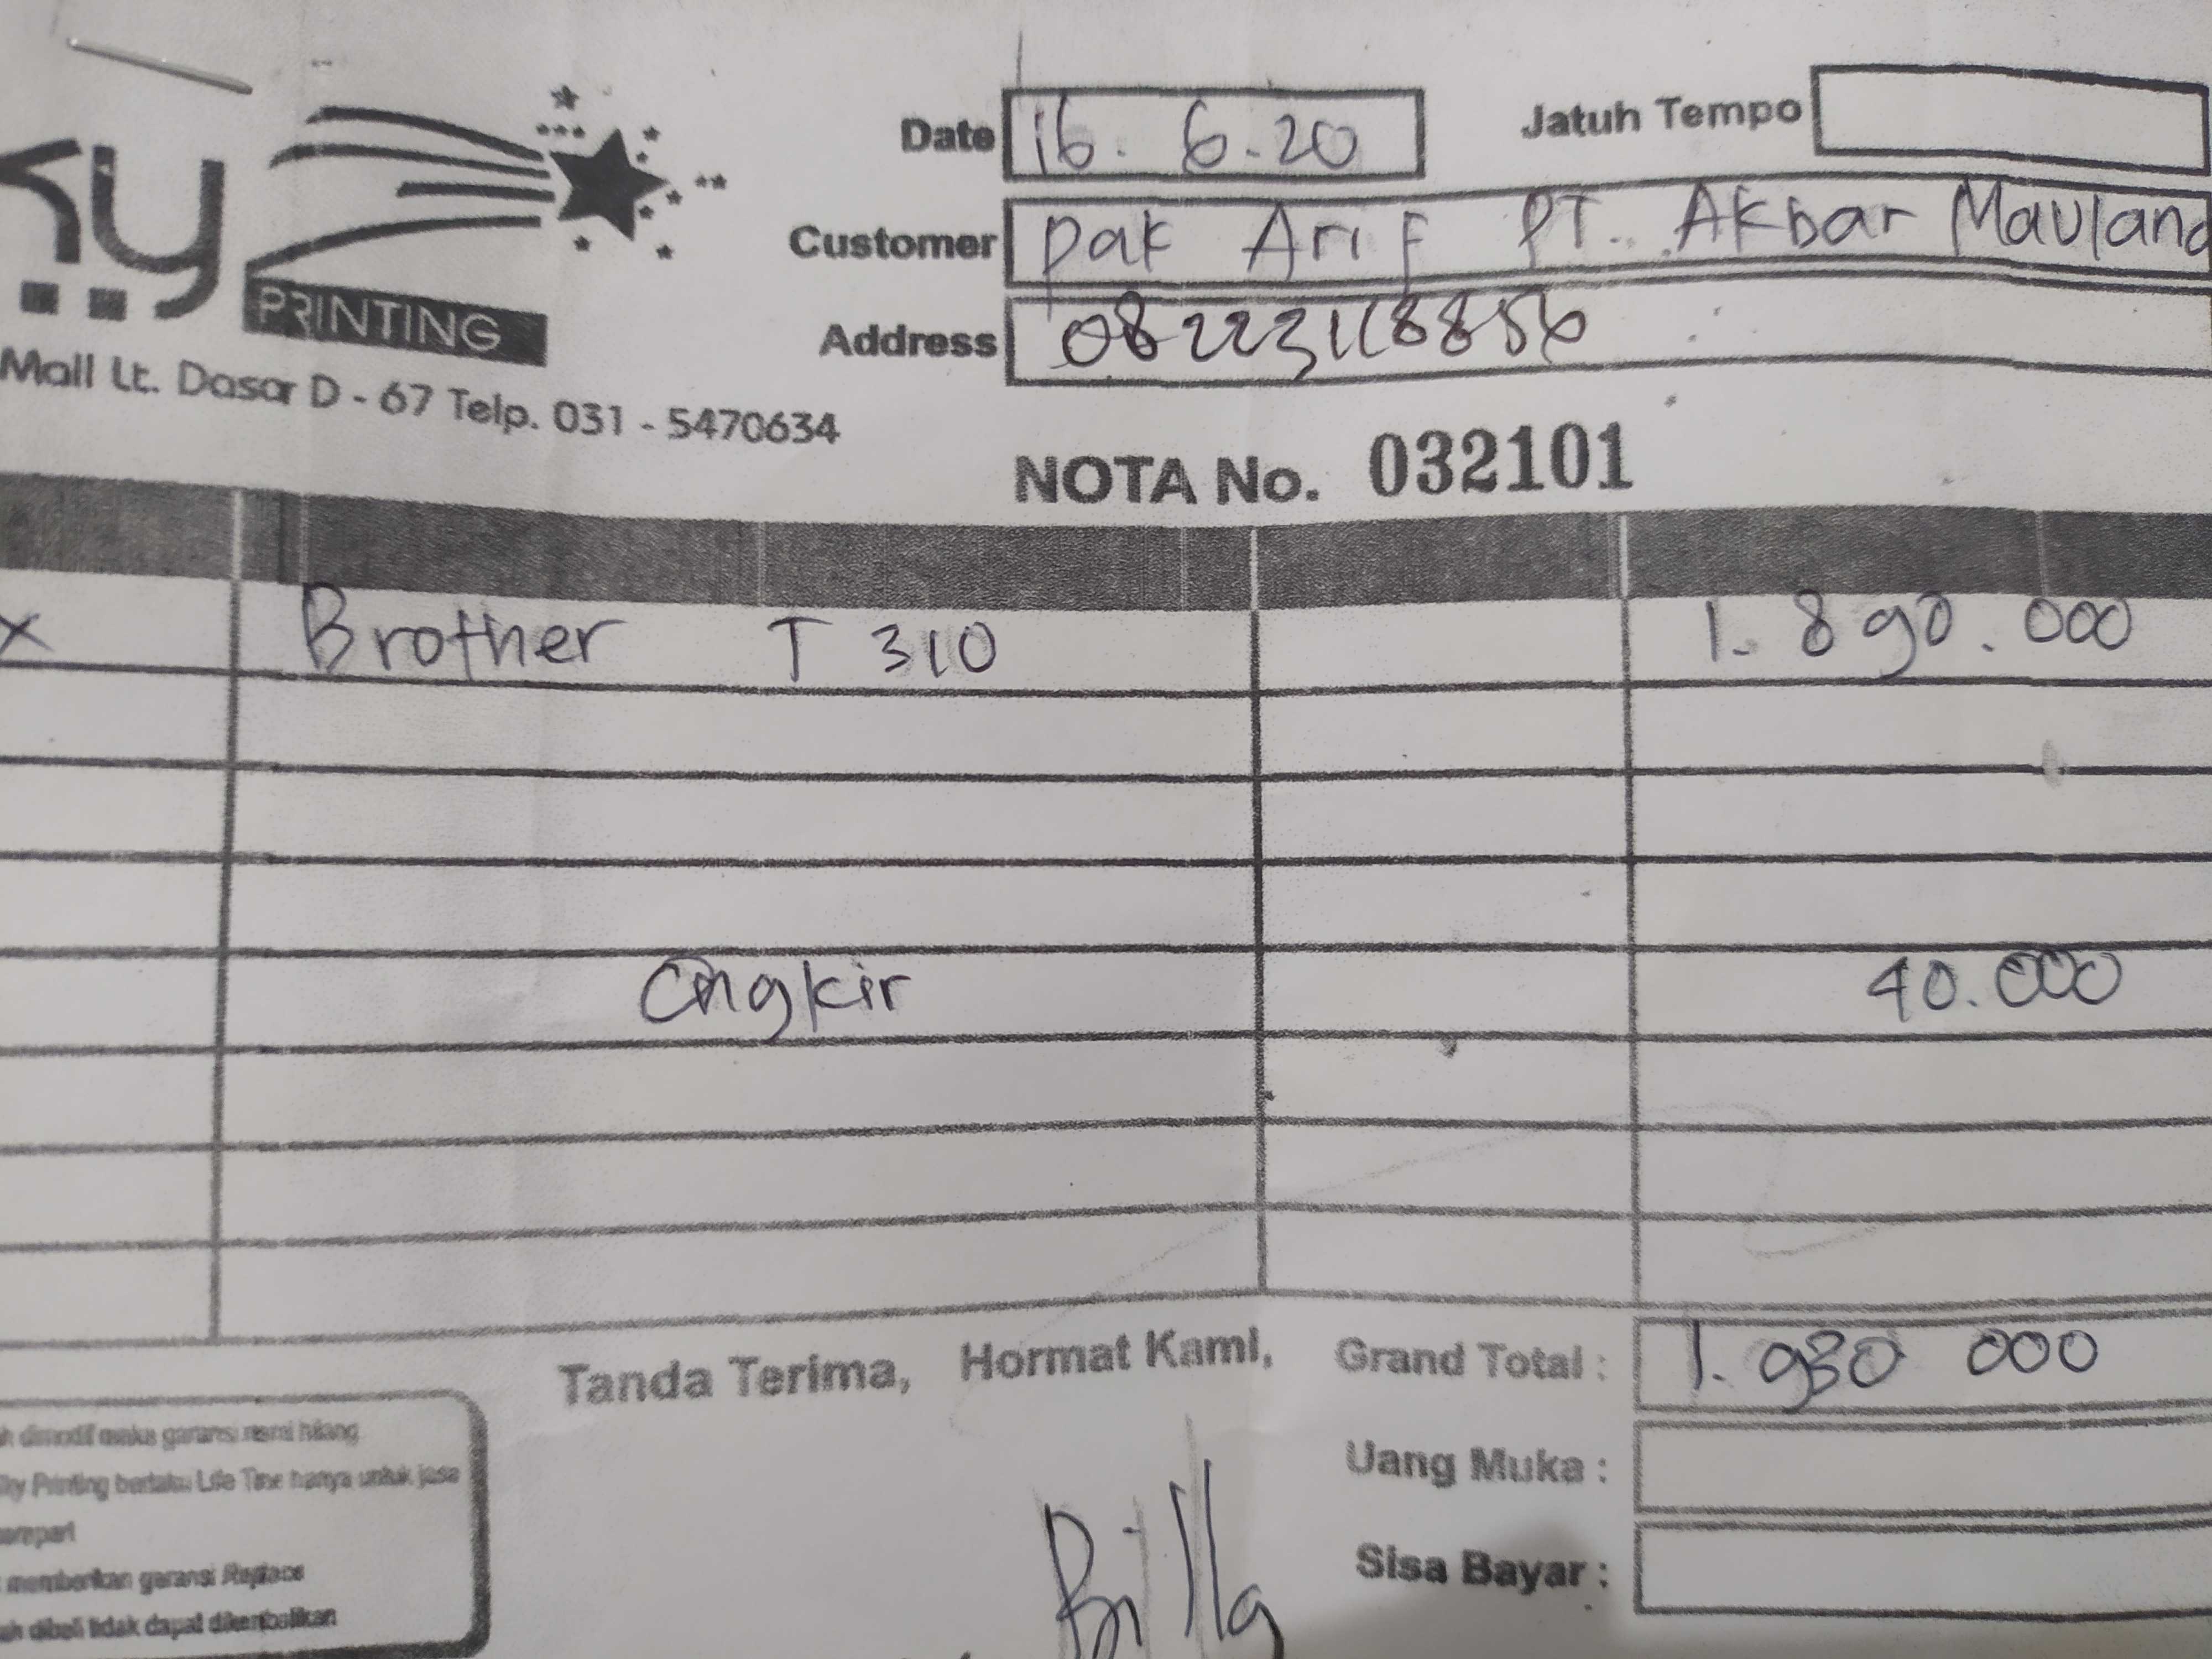 Date 16. 6. 20 Jatuh Tempo
Customer pak Arif PT. Akbar Maulana
Address 082223118856
PRINTING
Mall Lt. Dasar D - 67 Telp. 031 - 5470634
NOTA No. 032101
x Brother T 310 1. 890. 000
Ongkir 40.000
Tanda Terima, Hormat Kami, Grand Total : 1. 930 000
Uang Muka :
Sisa Bayar :
garansi resmi hilang
Printing berlaku Life Time hanya untuk jasa
memberikan garansi Replace
dibeli tidak dapat dikembalikan
Billa